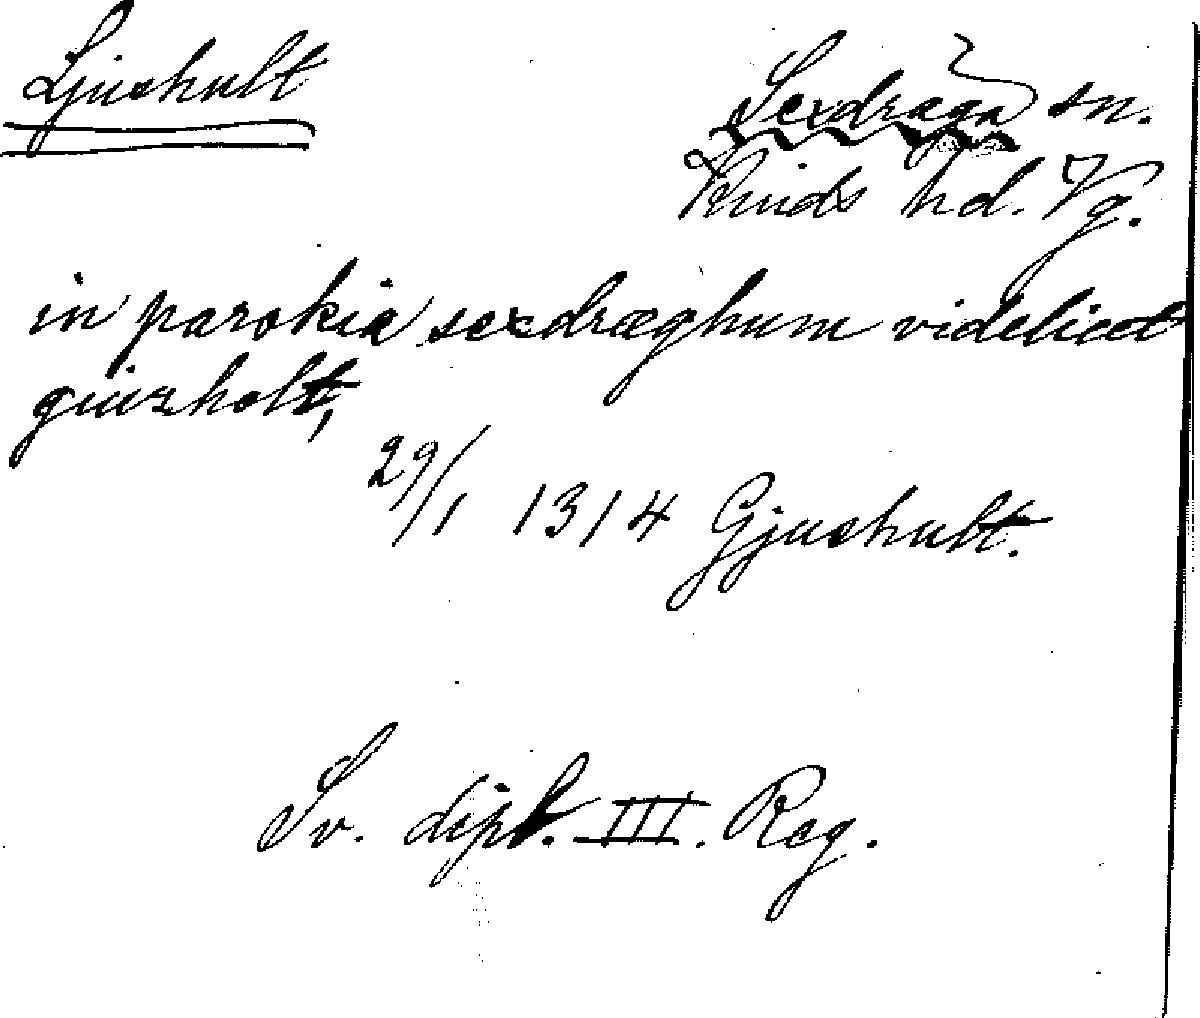 Ljushult
Sexdraga sn.
Kinds hd. Vg.
in parokia sexdræghum videlicet
giuzholt,
29/1 1314 Gjushult.
Sv. dipl. III. Reg.